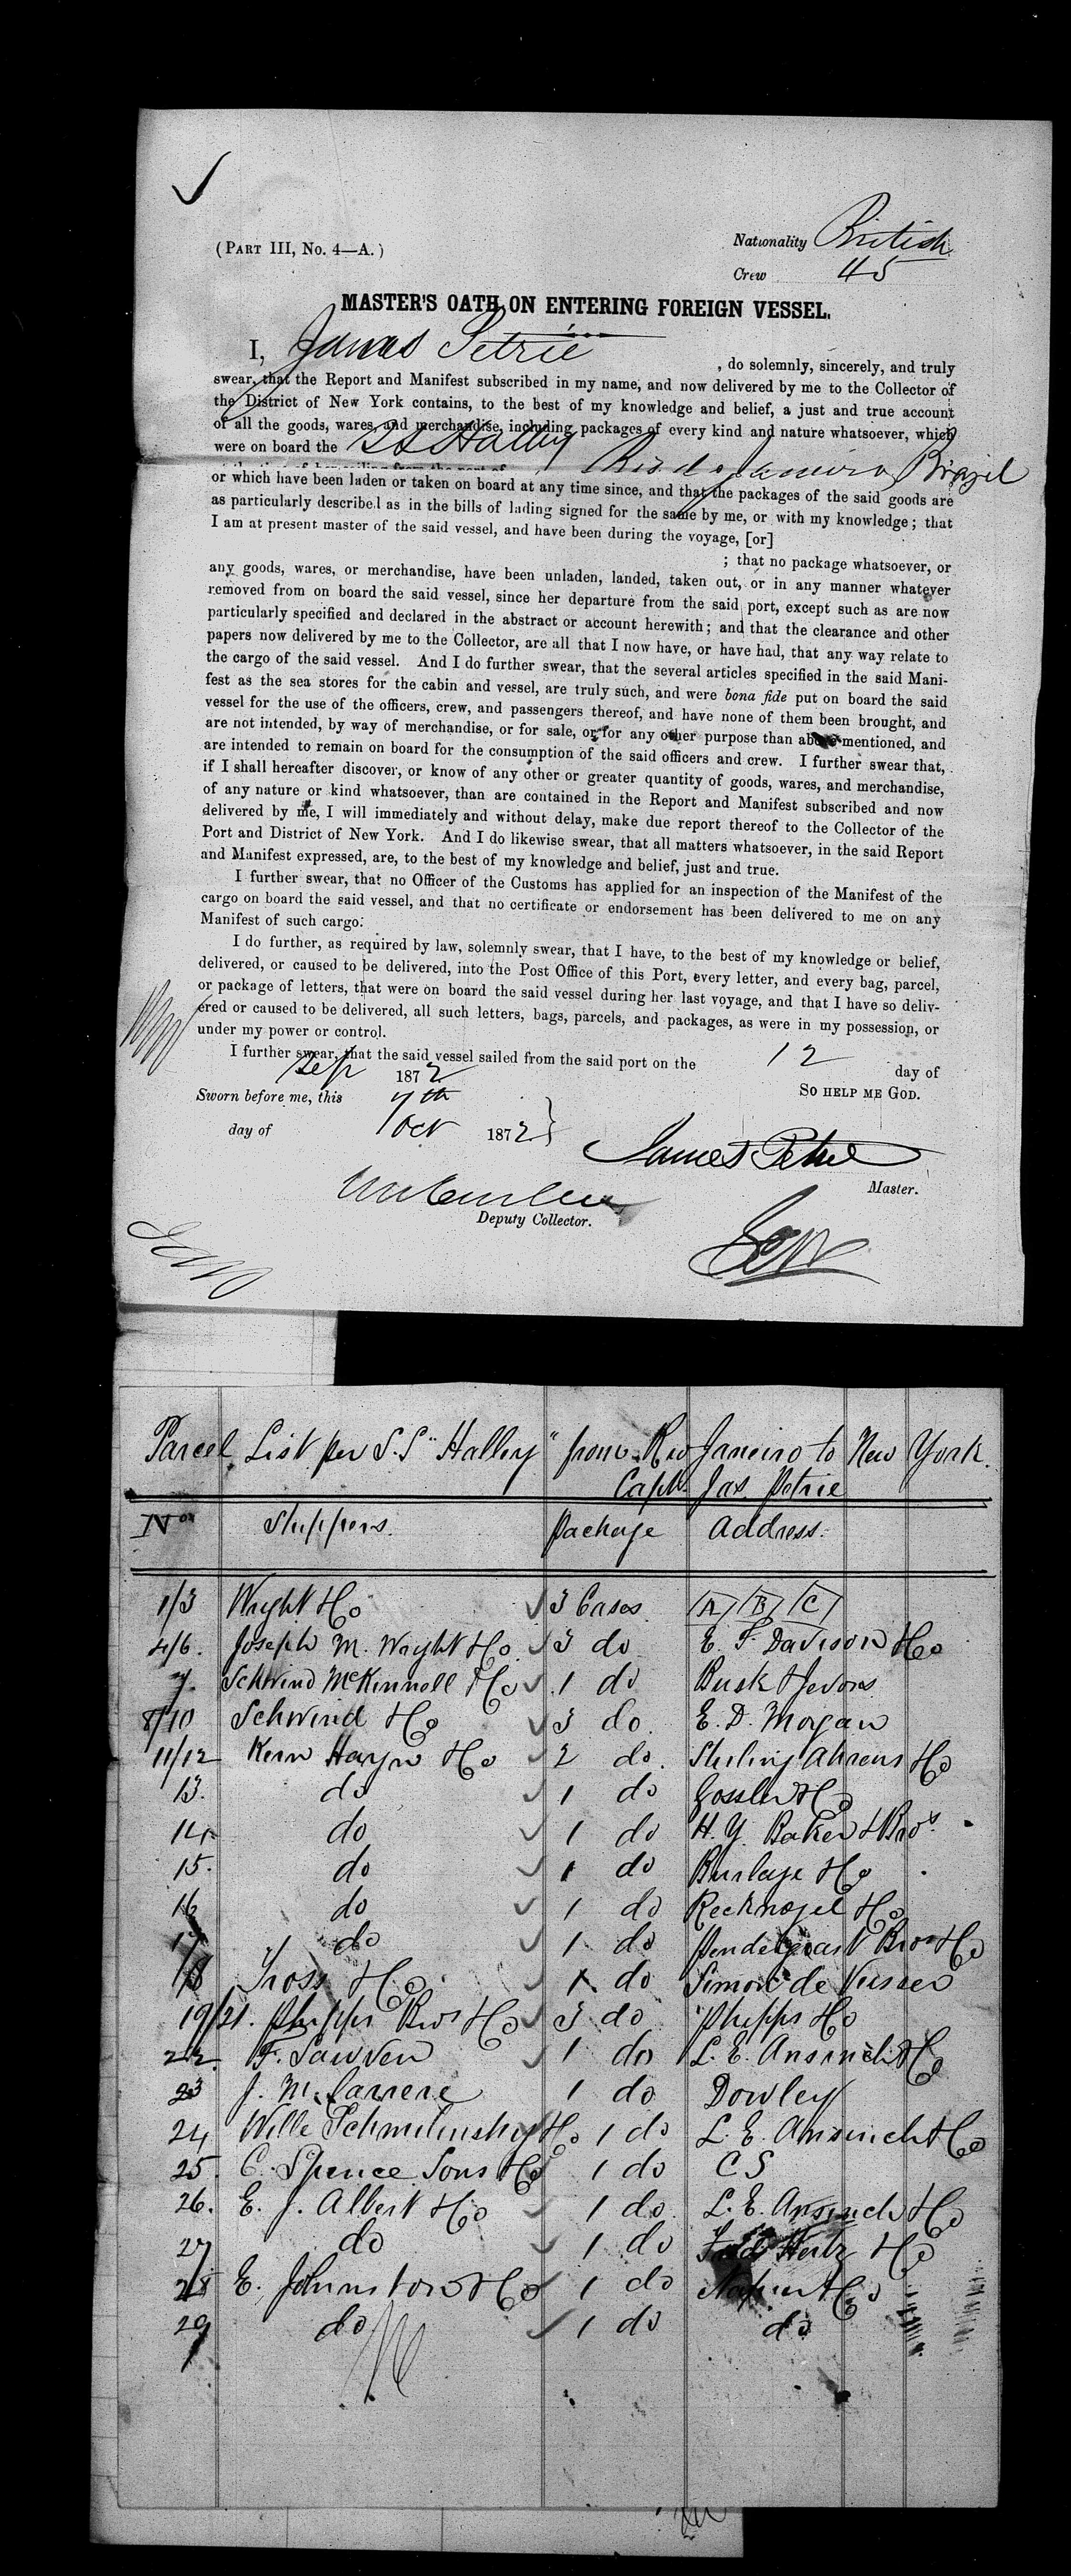 (PART III, No. 4—A.)
Nationality British
Crew 45
MASTER'S OATH ON ENTERING FOREIGN VESSEL.
I, James Petrie , do solemnly, sincerely, and truly
swear, that the Report and Manifest subscribed in my name, and now delivered by me to the Collector of
the District of New York contains, to the best of my knowledge and belief, a just and true account
of all the goods, wares, and merchandise, including packages of every kind and nature whatsoever, which
were on board the SS Halley
Rio de Janeiro Brazil
or which have been laden or taken on board at any time since, and that the packages of the said goods are
as particularly described as in the bills of lading signed for the same by me, or with my knowledge; that
I am at present master of the said vessel, and have been during the voyage, [or]
; that no package whatsoever, or
any goods, wares, or merchandise, have been unladen, landed, taken out, or in any manner whatever
removed from on board the said vessel, since her departure from the said port, except such as are now
particularly specified and declared in the abstract or account herewith; and that the clearance and other
papers now delivered by me to the Collector, are all that I now have, or have had, that any way relate to
the cargo of the said vessel. And I do further swear, that the several articles specified in the said Mani-
fest as the sea stores for the cabin and vessel, are truly such, and were bona fide put on board the said
vessel for the use of the officers, crew, and passengers thereof, and have none of them been brought, and
are not intended, by way of merchandise, or for sale, or for any other purpose than above mentioned, and
are intended to remain on board for the consumption of the said officers and crew. I further swear that,
if I shall hereafter discover, or know of any other or greater quantity of goods, wares, and merchandise,
of any nature or kind whatsoever, than are contained in the Report and Manifest subscribed and now
delivered by me, I will immediately and without delay, make due report thereof to the Collector of the
Port and District of New York. And I do likewise swear, that all matters whatsoever, in the said Report
and Manifest expressed, are, to the best of my knowledge and belief, just and true.
I further swear, that no Officer of the Customs has applied for an inspection of the Manifest of the
cargo on board the said vessel, and that no certificate or endorsement has been delivered to me on any
Manifest of such cargo.
I do further, as required by law, solemnly swear, that I have, to the best of my knowledge or belief,
delivered, or caused to be delivered, into the Post Office of this Port, every letter, and every bag, parcel,
or package of letters, that were on board the said vessel during her last voyage, and that I have so deliv-
ered or caused to be delivered, all such letters, bags, parcels, and packages, as were in my possession, or
under my power or control.
I further swear, that the said vessel sailed from the said port on the 12 day of
Sep 1872
SO HELP ME GOD.
Sworn before me, this 7th
day of Oct 1872
James Petrie
Master.
Deputy Collector.
Parcel List per S.S "Halley" from Rio Janeiro to New York.
Capt. Jas Petrie
No Shippers. Package Address.
1/3 Wright & Co 3 Cases A B C
4/6. Joseph M. Wright & Co 3 do E. F. Davison & Co
7. Schwind McKinnell & Co 1 do Busk & Jevons
8/10 Schwind & Co 3 do. E. D. Morgan
11/12 Kern Hayn & Co 2 do. Sterling Ahrens & Co
13. do 1 do Gossler & Co
14 do 1 do H. Y. Baker & Bros.
15. do 1 do Burlage & Co
16 do 1 do Recknagel & Co
17 do 1 do Pendergast Bros & Co
18 Gross & Co. 1 do Simon de Visser
19/21. Phipps Bros & Co 3 do Phipps & Co
22. F. Sauwen 1 do L. E. Amsinck & Co
23 J. M. Carrere 1 do Dowley
24 Wille Schmilinsky & Co 1 do L. E. Amsinck & Co
25. C. Spence Sons & Co 1 do C S
26. E. J. Albert & Co 1 do. L. E. Amsinck & Co
27 do 1 do Hertz & Co
28 E. Johnston & Co 1 do Napier & Co
29 do 1 do do.